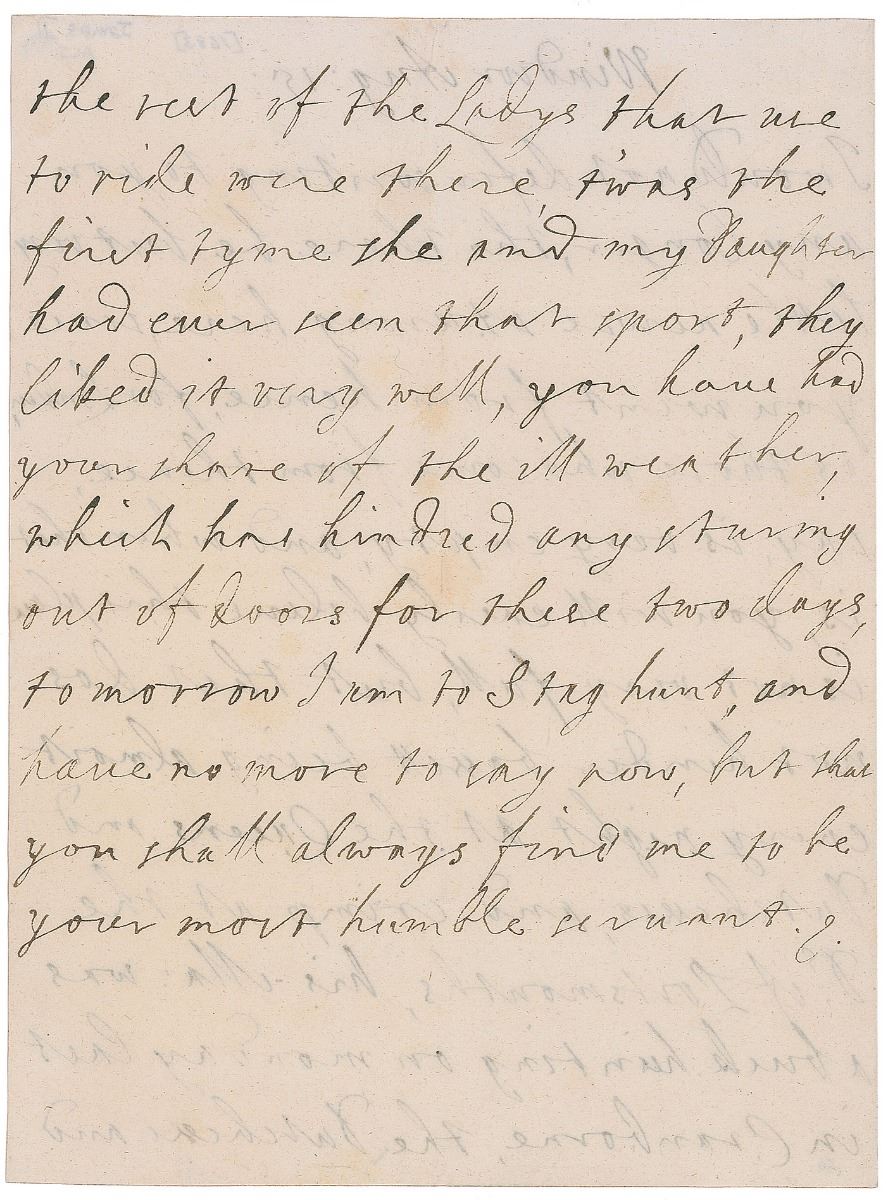 the rest of the Ladys that use
to ride were there, twas the
first tyme she and my Daughter
had ever seen that sport, they
liked it very well, you have had
your share of the ill weather,
which has hindred any sturing
out of doors for these two days,
tomorrow I am to Stag hunt, and
have no more to say now, but that
you shall always find me to be
your most humble servant.